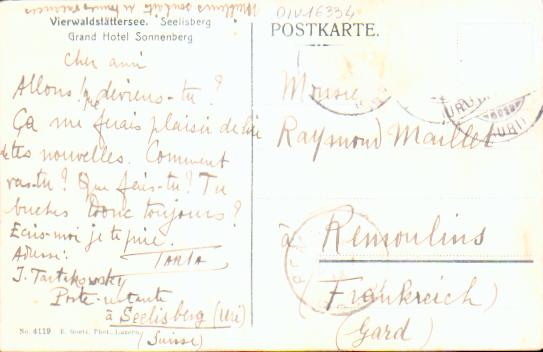 Meilleurs souhaits
DIV16334
Vierwaldstättersee. Seelisberg
Grand Hotel Sonnenberg
POSTKARTE.
cher ami
Allons! que deviens-tu?
Ça me ferais plaisir de
tes nouvelles. Comment
vas-tu? Que fais-tu? Tu
buches donc toujours?
Ecris-moi je te prie.
Adresse:
TARTA
J. Tartakowsky
Poste-restante
à Seelisberg (Uri)
(Suisse)
Raymond Maillet
à Remoulins
(Frankreich)
(Gard)
No. 4119 E. Goetz Phot., Luzern.